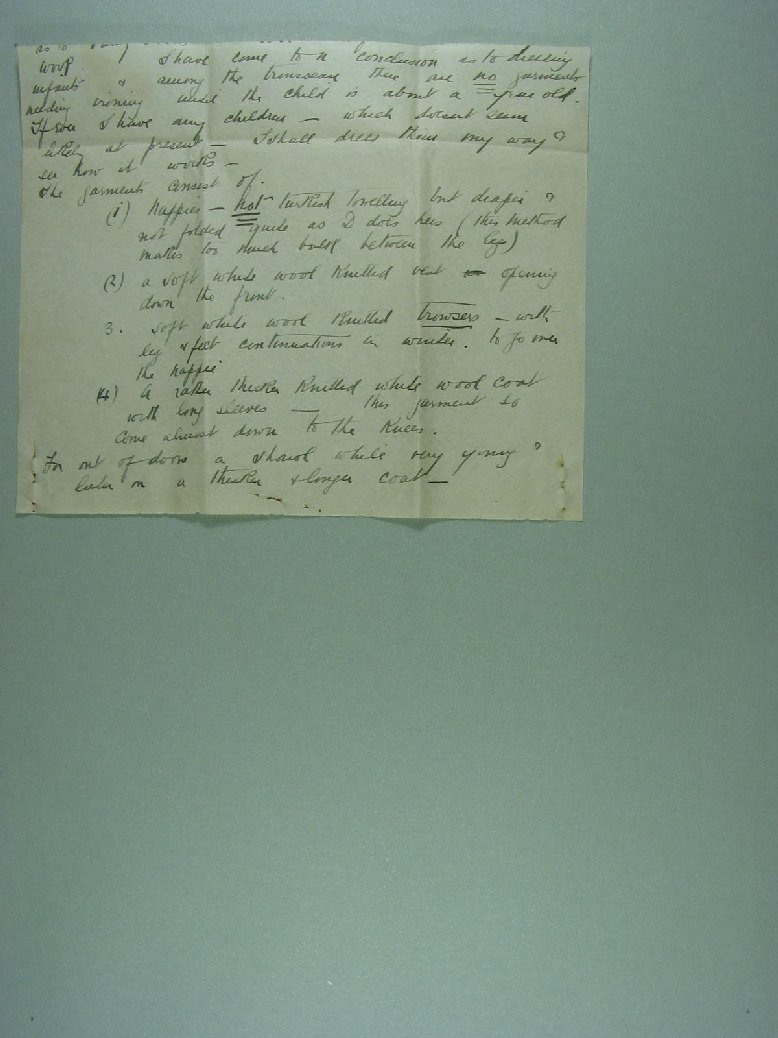 as to
wool. I have come to a conclusion as to dressing
infants & among the trousseau there are no garments
needing ironing until the child is about a year old.
If ever I have any children — which doesnt seem
likely at present — I shall dress them my way &
see how it works —
The garments consist of.
(1) Nappies — not turkish towelling but diaper &
not folded quite as D does hers (this method
makes too much bulk between the legs)
(2) a soft white wool knitted vest opening
down the front.
3. soft white wool knitted trowsers — with
leg & feet continuations in winter. to go over
the nappie
(4) A rather thicker knitted white wool coat
with long sleeves — this garment to
come almost down to the knees.
For out of doors a shawl while very young &
later on a thicker & longer coat —